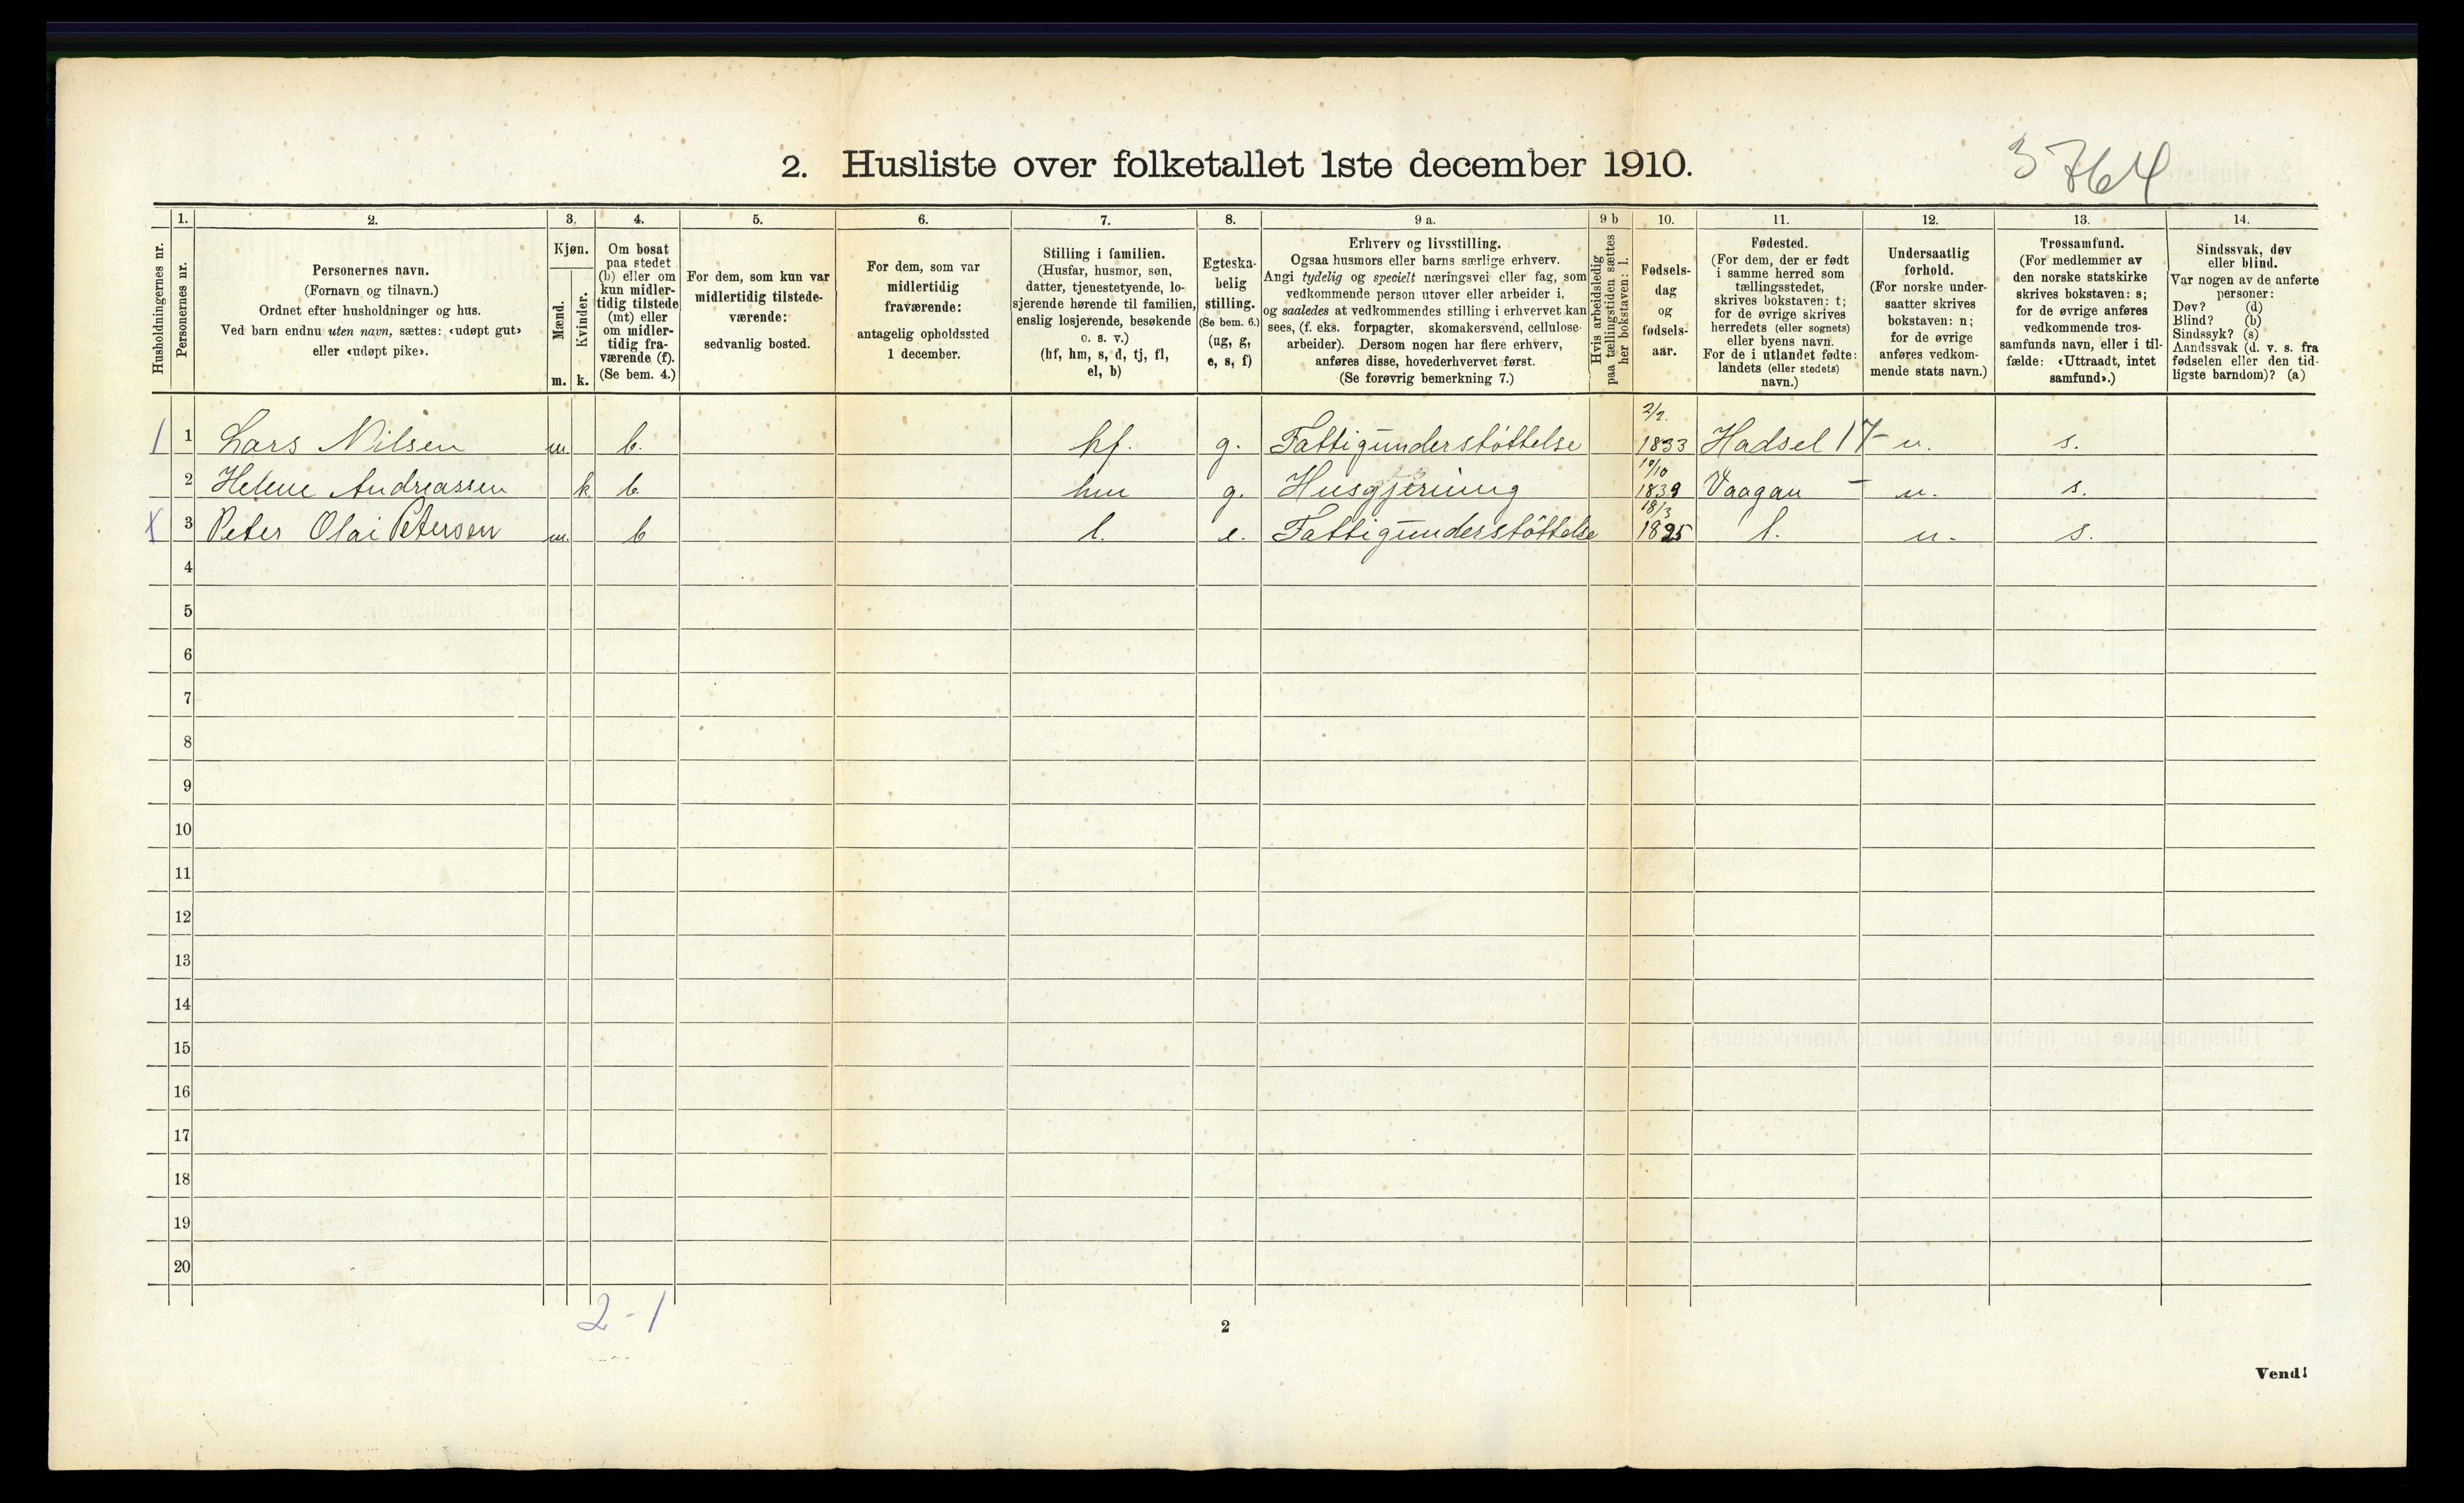 2. Husliste over folketallet 1ste december 1910.
3764
Husholdningernes nr.
1.
Personernes nr.
2.
Personernes navn.
(Fornavn og tilnavn.)
Ordnet efter husholdninger og hus.
Ved barn endnu uten navn, sættes: «udøpt gut»
eller «udøpt pike».
3.
Kjøn.
Mænd.
m.
Kvinder.
k.
4.
Om bosat
paa stedet
(b) eller om
kun midler-
tidig tilstede
(mt) eller
om midler-
tidig fra-
værende (f).
(Se bem. 4.)
5.
For dem, som kun var
midlertidig tilstede-
værende:
sedvanlig bosted.
6.
For dem, som var
midlertidig
fraværende:
antagelig opholdssted
1 december.
7.
Stilling i familien.
(Husfar, husmor, søn,
datter, tjenestetyende, lo-
sjerende hørende til familien,
enslig losjerende, besøkende
o. s. v.)
(hf, hm, s, d, tj, fl,
el, b)
8.
Egteska-
belig
stilling.
(Se bem. 6.)
(ug, g,
e, s, f)
9 a.
Erhverv og livsstilling.
Ogsaa husmors eller barns særlige erhverv.
Angi tydelig og specielt næringsvei eller fag, som
vedkommende person utøver eller arbeider i,
og saaledes at vedkommendes stilling i erhvervet kan
sees, (f. eks. forpagter, skomakersvend, cellulose-
arbeider). Dersom nogen har flere erhverv,
anføres disse, hovederhvervet først.
(Se forøvrig bemerkning 7.)
9 b
Hvis arbeidsledig
paa tællingstiden sættes
her bokstaven: l.
10.
Fødsels-
dag
og
fødsels-
aar.
11.
Fødested.
(For dem, der er født
i samme herred som
tællingsstedet,
skrives bokstaven: t;
for de øvrige skrives
herredets (eller sognets)
eller byens navn.
For de i utlandet fødte:
landets (eller stedets)
navn.)
12.
Undersaatlig
forhold.
(For norske under-
saatter skrives
bokstaven: n;
for de øvrige
anføres vedkom-
mende stats navn.)
13.
Trossamfund.
(For medlemmer av
den norske statskirke
skrives bokstaven: s;
for de øvrige anføres
vedkommende tros-
samfunds navn, eller i til-
fælde: «Uttraadt, intet
samfund».)
14.
Sindssvak, døv
eller blind.
Var nogen av de anførte
personer:
Døv? (d)
Blind? (b)
Sindssyk? (s)
Aandssvak (d. v. s. fra
fødselen eller den tid-
ligste barndom)? (a)
1 1 Lars Nilsen m. b. hf. g. Fattigunderstøttelse 2/2. 1833 Hadsel 17 - n. s.
2 Helene Andreassen k b. hm g. Husgjerning 10/10 1839 Vaagan - n. s.
X 3 Peter Olai Petersen m. b l. e. Fattigunderstøttelse 18/3 1825 t. n. s.
4
5
6
7
8
9
10
11
12
13
14
15
16
17
18
19
20
2 - 1
2
Vend!